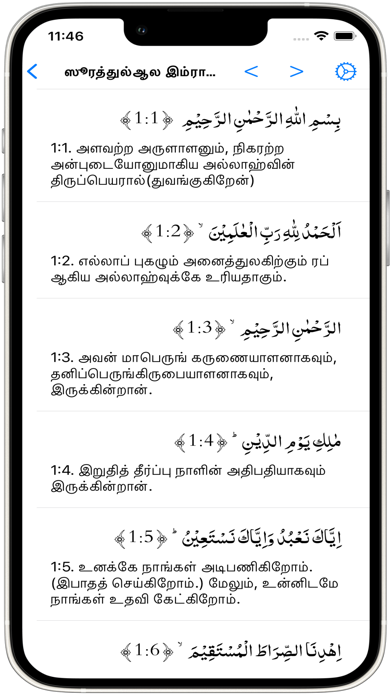 11:46
ஸூரத்துல்ஆல இம்ரா...
بِسْمِ اللّٰهِ الرَّحْمٰنِ الرَّحِيْمِ ﴿1:1﴾
1:1. அளவற்ற அருளாளனும், நிகரற்ற
அன்புடையோனுமாகிய அல்லாஹ்வின்
திருப்பெயரால்(துவங்குகிறேன்)
اَلْحَمْدُ لِلّٰهِ رَبِّ الْعٰلَمِيْنَ ۙ ﴿1:2﴾
1:2. எல்லாப் புகழும் அனைத்துலகிற்கும் ரப்
ஆகிய அல்லாஹ்வுக்கே உரியதாகும்.
الرَّحْمٰنِ الرَّحِيْمِ ۙ ﴿1:3﴾
1:3. அவன் மாபெருங் கருணையாளனாகவும்,
தனிப்பெருங்கிருபையாளனாகவும்,
இருக்கின்றான்.
مٰلِكِ يَوْمِ الدِّيْنِ ؕ ﴿1:4﴾
1:4. இறுதித் தீர்ப்பு நாளின் அதிபதியாகவும்
இருக்கின்றான்.
اِيَّاكَ نَعْبُدُ وَاِيَّاكَ نَسْتَعِيْنُ ؕ ﴿1:5﴾
1:5. உனக்கே நாங்கள் அடிபணிகிறோம்.
(இபாதத் செய்கிறோம்.) மேலும், உன்னிடமே
நாங்கள் உதவி கேட்கிறோம்.
اِهْدِنَا الصِّرَاطَ الْمُسْتَقِيْمَ ۙ ﴿1:6﴾